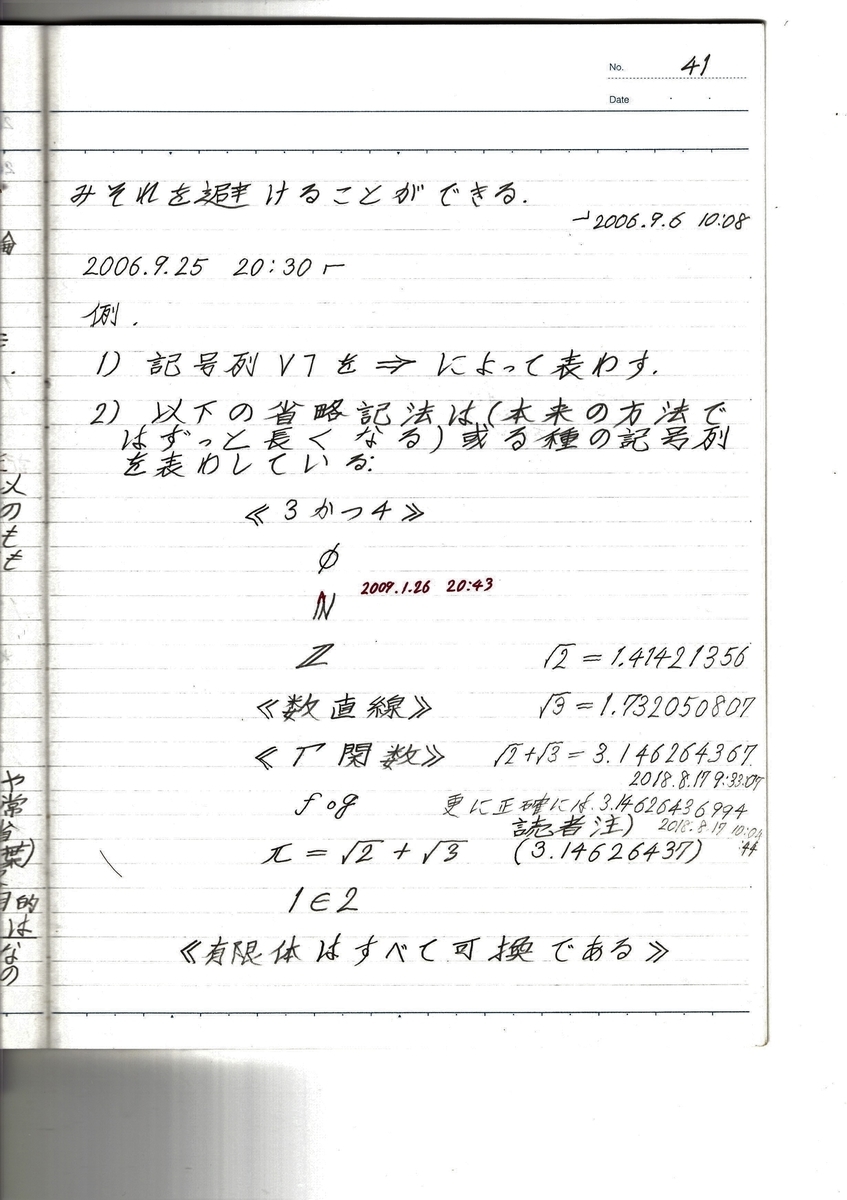 No. 41
Date
みそれを避けることができる.
┘2006.9.6 10:08
2006.9.25 20:30┌
例.
1) 記号列 ∨ㄱを ⇒ によって表わす.
2) 以下の省略記法は(本来の方法で
はずっと長くなる)或る種の記号列
を表わしている:
≪3かつ4≫
∅
2009.1.26 20:43
ℕ
ℤ √2 = 1.41421356
≪数直線≫ √3 = 1.732050807
≪Γ関数≫ √2+√3 = 3.146264367
2018.8.17 9:33:07
f∘g 更に正確には.3.14626436994
読者注) 2018.8.17 10:04
:44
π = √2 + √3 (3.14626437)
1∈2
≪有限体はすべて可換である≫